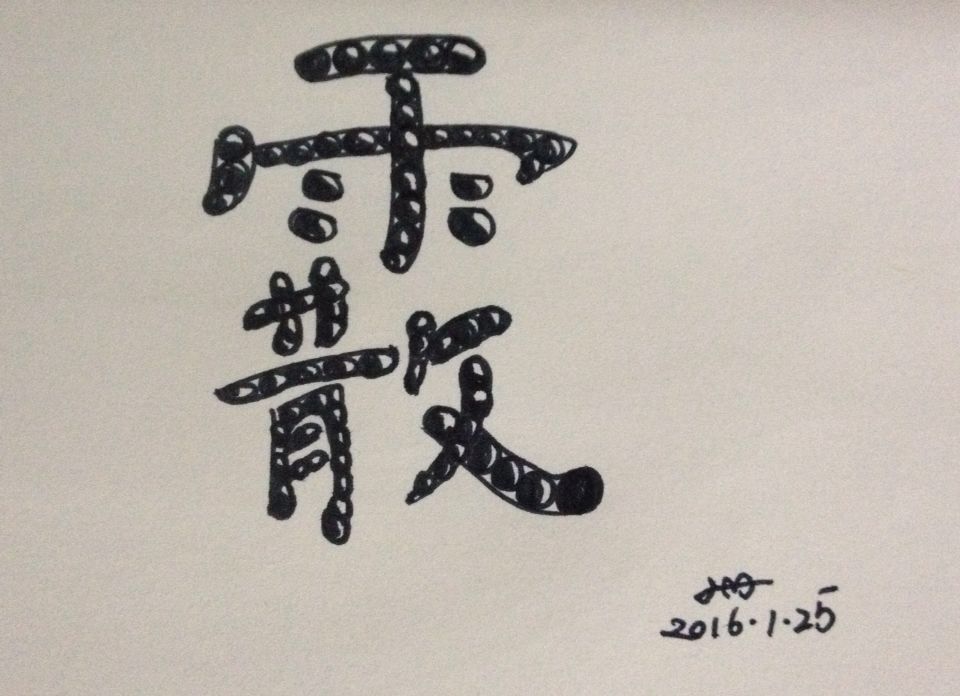 霰
2016.1.25